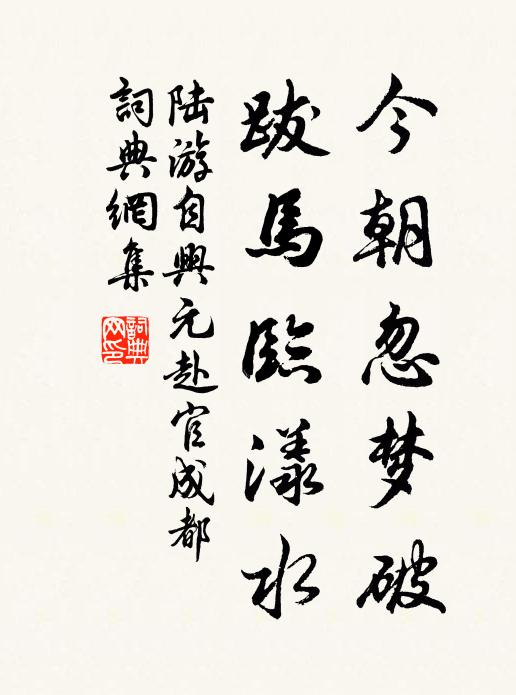 今朝忽梦破
跋馬臨漾水
陆游自興元赴官成都
詞典網集
詞典网印